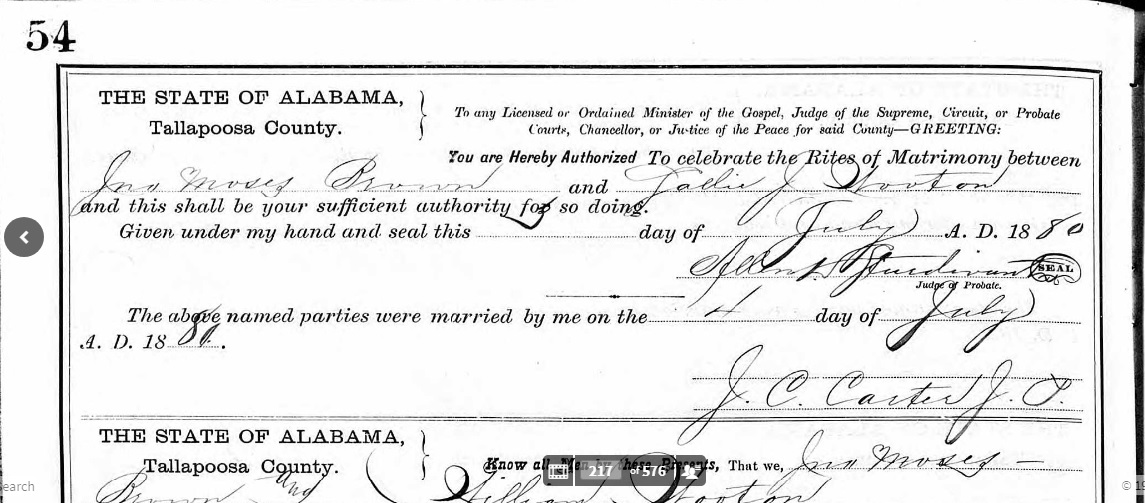 54
THE STATE OF ALABAMA,
Tallapoosa County.
To any Licensed or Ordained Minister of the Gospel, Judge of the Supreme, Circuit, or Probate
Courts, Chancellor, or Justice of the Peace for said County—GREETING:
You are Hereby Authorized To celebrate the Rites of Matrimony between
Jno Moses Brown and Sallie J Wooton
and this shall be your sufficient authority for so doing.
Given under my hand and seal this day of July A. D. 1880
Sturdivant SEAL
Judge of Probate.
The above named parties were married by me on the 4 day of July
A. D. 1880.
J. C. Carter J. P.
THE STATE OF ALABAMA,
Tallapoosa County.
Know all Men by these Presents, That we, Jno Moses
Brown and William Wooton
217 of 576
earch
© 1